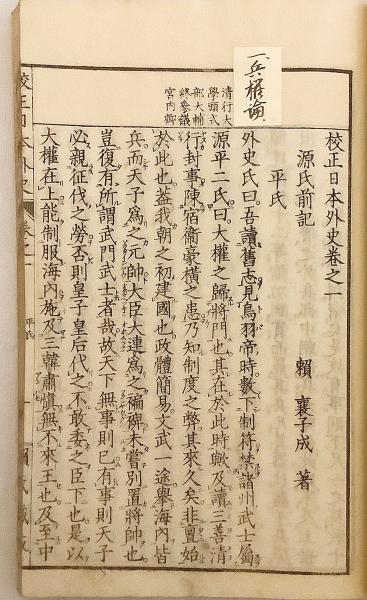 校正日本外史卷之一
源氏前記
賴襄子成著
平氏
外史氏曰吾讀舊志見鳥羽帝時數下制符禁諸州武士屬
源平二氏曰大權之歸將門也其在於此時歟及讀三善清
行封事陳宿衞豪横之患乃知制度之弊其來久矣非亶始
於此也蓋我朝之初建國也政體簡易文武一途舉海內皆
兵而天子爲之元帥大臣大連爲之褊裨未嘗別置將帥也
豈復有所謂武門武士者哉故天下無事則已有事則天子
必親征伐之勞否則皇子皇后代之不敢委之臣下也是以
大權在上能制服海內施及三韓肅愼無不來王也及至中
兵權論
清行大
學頭式
部大輔
終參議
宮內卿
校正日本外史
卷之一
平氏
一
賴氏藏版